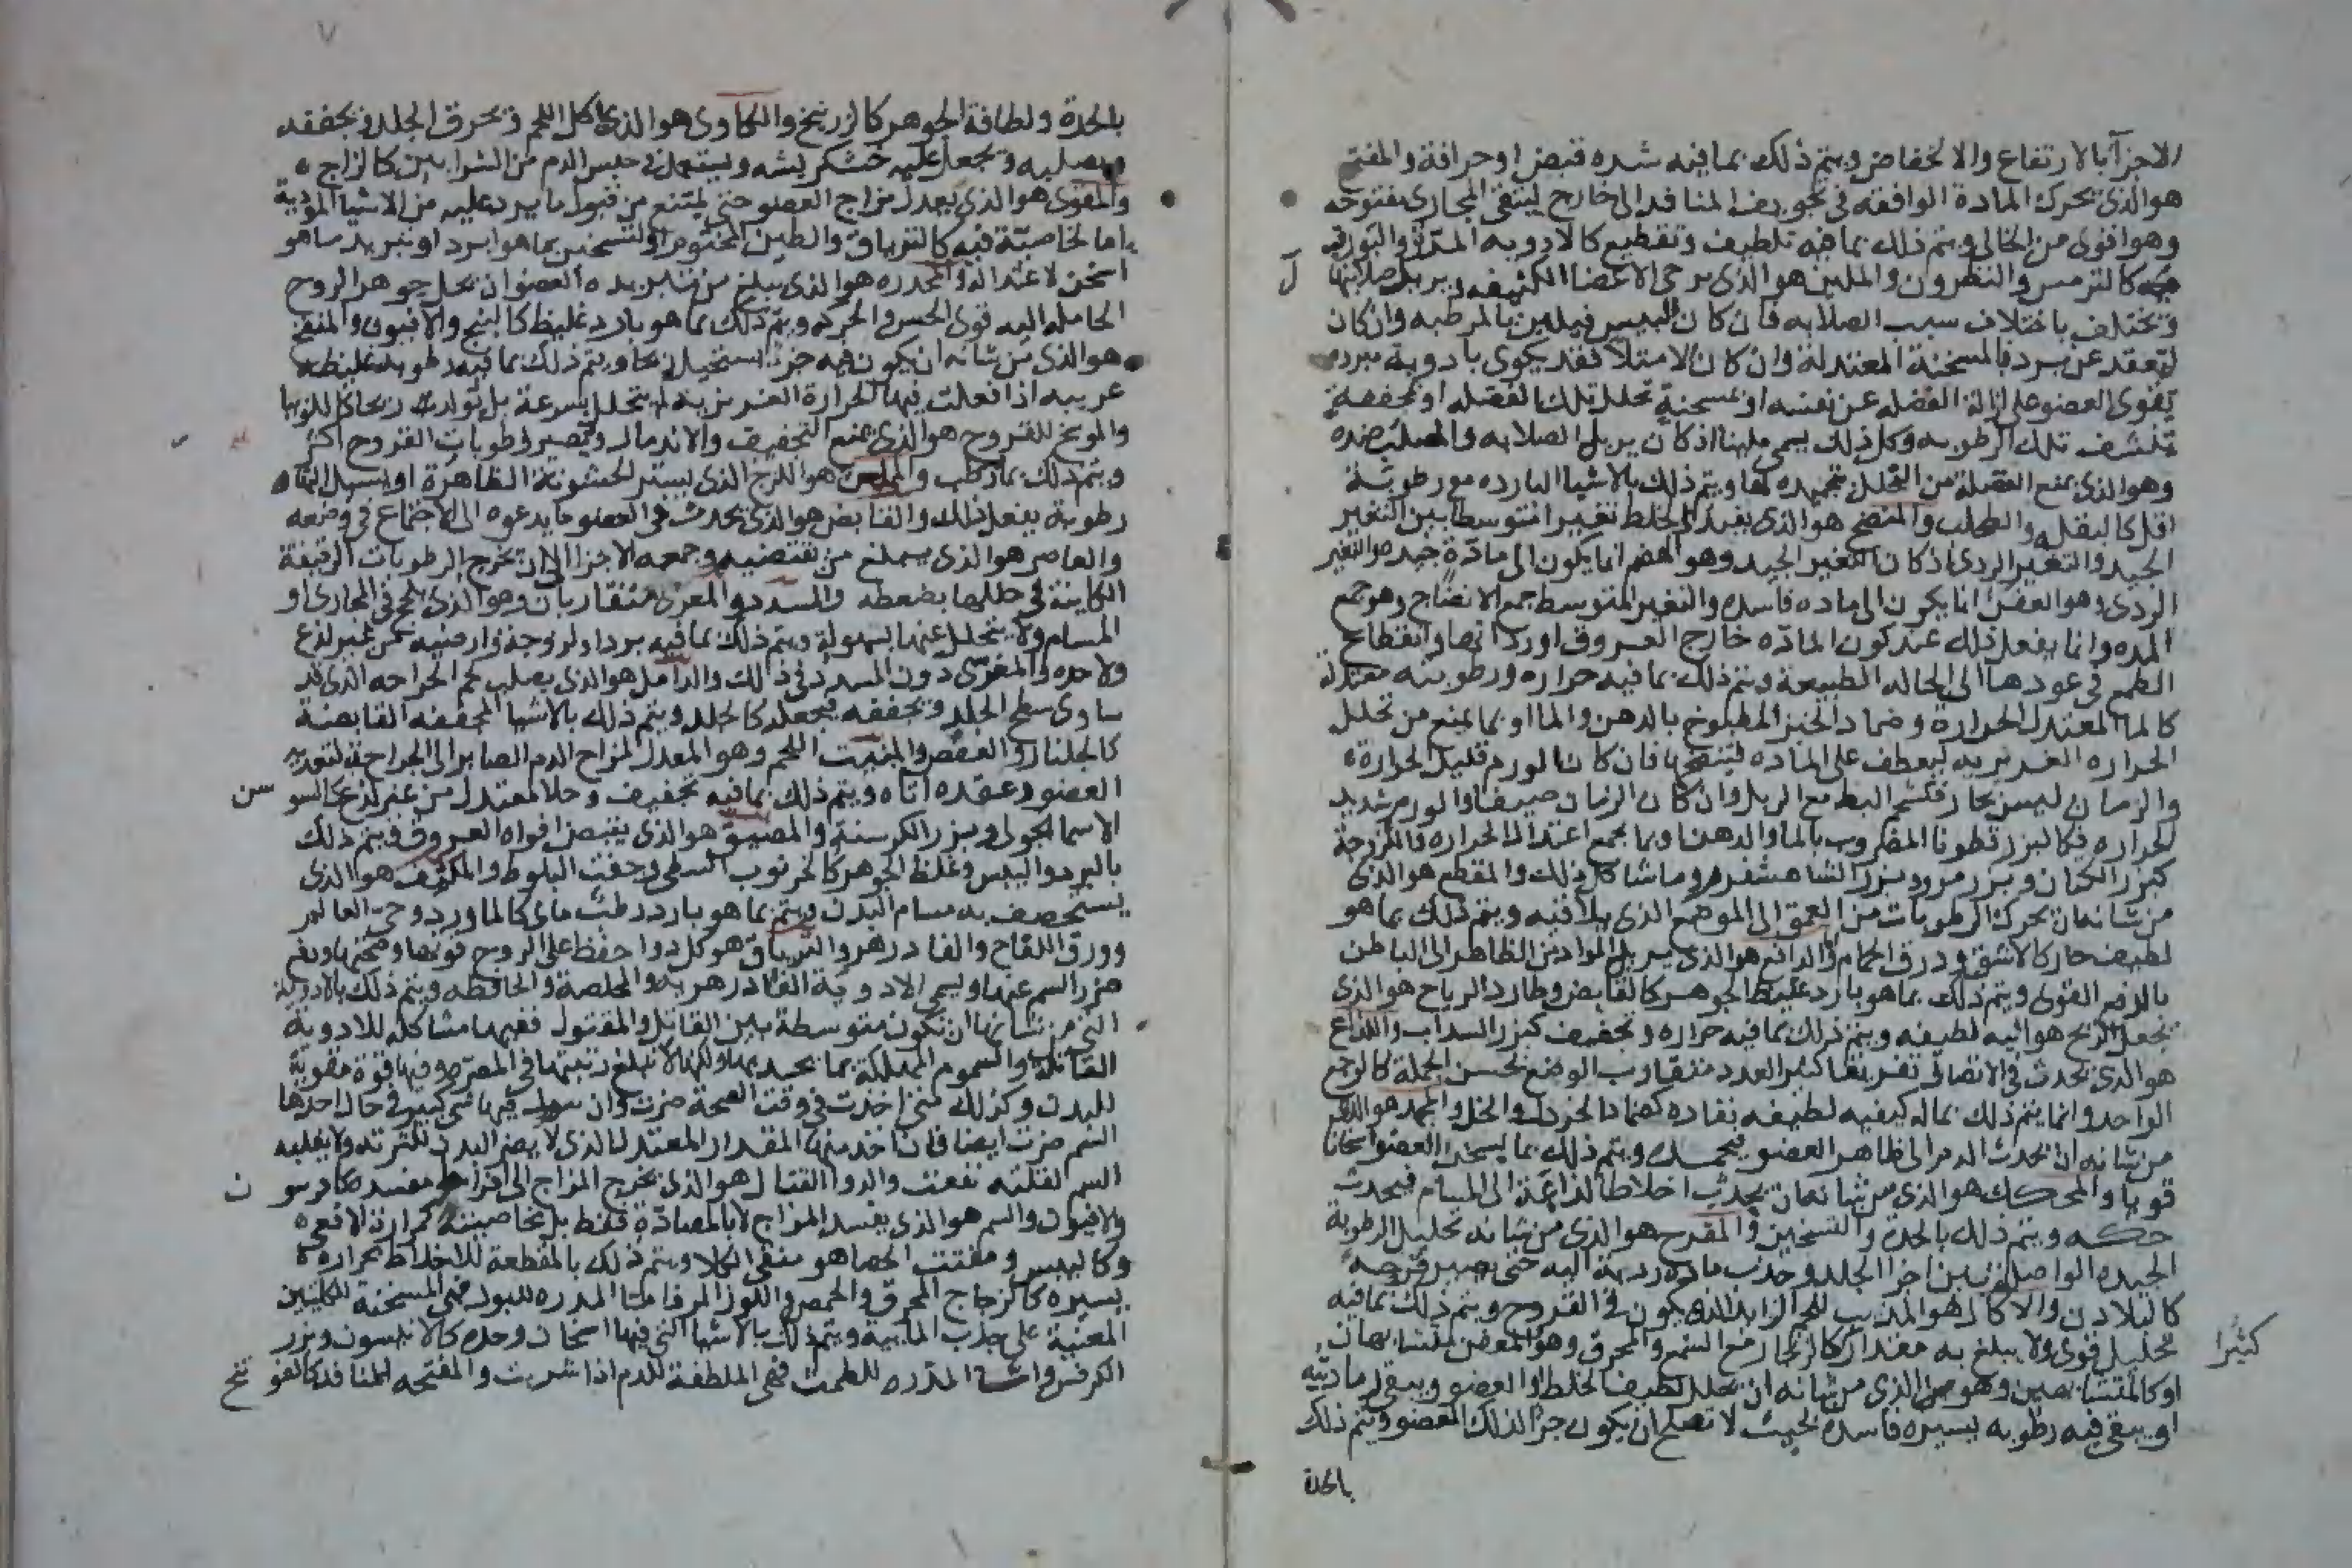 الاجزآ بالارتفاع والانخفاض ويتم ذلك بما فيه شده قبض او حرافة والمفتح
هو الذى يحرك المادة الواقفه فى تجويف المنافذ الى خارج ليبقى المجارى مفتوحه
وهو اقوى من الجالى ويتم ذلك بما فيه تلطيف وتقطيع كالادويه المرة والبورقيه
كالترمس والنطرون والملين هو الذى يرخى الاعضا الكثيفه ويزيل صلابتها
وتختلف باختلاف سبب الصلابه فان كان لليبس فيلين بالمرطبه وان كان
لتعقد عن برد فالمسخنة المعتدلة وان كان لامتلا فقد يكون بادوية مبرده
يقوى العضو على ازالة الفضله عن نفسه او بمسخنة تحلل تلك الفضله او مجففة
تنشف تلك الرطوبه وكل ذلك يسمى ملينا اذ كان يزيل الصلابه والمصلب ضده
وهو الذى يمنع الفضلة من التحلل بتجميده لها ويتم ذلك بالاشيا البارده مع رطوبة
اقل كالبقله والطحلب والمنضج هو الذى يغير الخلط تغييرا متوسطا بين التغير
الجيد والتغير الردى اذ كان التغير الجيد وهو الهضم انما يكون الى مادة جيده والتغير
الردى وهو العفن انما يكون الى ماده فاسده والتغير المتوسط جمع الانضاج وهو جمع
المده وانما يفعل ذلك عند كون المادة خارج العروق اوردا اتها وانقطاع
الطمع فى عودها الى الحاله الطبيعة ويتم ذلك بما فيه حراره ورطوبته معتدلة
كالما المعتدل الحرارة وضماد الخبز المطبوخ بالدهن والما او بما يمنع من تحليل
الحراره الغريزيه ليعطف على الماده لتنضجها فان كان الورم قليل الحرارة
والزمان ليس بحار فكشحم البط مع الزبل وان كان الزمان صيفا والورم شديد
الحراره فكالبزر قطونا المضروب بالما والدهن وبما يجمع اعتدال الحراره واللزوجة
كبزر الكتان وبزر مرو وبزر الشاهسفرم وما شاكل ذلك والمقطع هو الذى
من شانه ان يحرك الرطوبات من العمق الى الموضع الذى يلاقيه ويتم ذلك بما هو
لطيف حار كالاشق وذرق الحمام والرادع هو الذى يزيل المواد من الظاهر الى الباطن
بالدفع القوى ويتم ذلك بما هو بارد غليظ الجوهر كالقابض وطارد الرياح هو الذى
يجعل الريح هوائيه لطيفه ويتم ذلك بما فيه حراره وتجفيف كبزر السداب واللذاع
هو الذى يحدث فى الاتصال تفريقا كثير العدد متقارب الوضع يحس الجملة كالوجع
الواحد وانما يتم ذلك بماله كيفيه لطيفه نفاده كضماد الخردل والخل والمحمر هو الذى
من شانه ان يجذب الدم الى ظاهر العضو فيحمره ويتم ذلك بما يسخن العضو اسخانا
قويا والمحكك هو الذى من شانه ان يجذب اخلاطا لذاعة الى المسام فيحدث
حكه ويتم ذلك بالحدة والتسخين والمقرح هو الذى من شانه تحليل الرطوبة
الجيده الواصله بين اجزا الجلد وجذب ماده رديه اليه حتى يصير قرحه
كالبلادن والاكال هو المذيب للحم الزايد الذى يكون فى القروح ويتم ذلك بما فيه
تحليل قوى ولا يبلغ به مقدار كالزنجار مع الشمع والمحرق وهو المعفن متشابهان
كثيرا
او كالمتشابهين وهو من الذى من شانه ان يحلل لطيف الخلط والعضو ويبقى رماديته
او يبقى فيه رطوبه يسيره فاسدة بحيث لا تصلح ان يكون جزا لذلك العضو ويتم ذلك
بالحدة
بالحدة ولطافة الجوهر كالزرنيخ والكاوى هو الذى ياكل اللحم ويحرق الجلد ويجففه
ويصلبه ويجعل عليه خشكريشه ويستعمل فى حبس الدم من الشرايين كالزاج
والمقوى هو الذى يعدل مزاج العضو حتى يمتنع من قبول ما يرد عليه من الاشيا الموذية
اما لخاصيته فيه كالترياق والطين المختوم او لتسخين بما هو ابرد او بتبريد ما هو
اسخن لاعتداله والمخدره هو الذى يبلغ من تبريده العضو ان يحل جوهر الروح
الحامله اليه قوى الحس والحركه ويتم ذلك بما هو بارد غليظ كالبنج والافيون والمنفخ
هو الذى من شانه ان يكون فيه جزء يستحيل ريحا ويتم ذلك بما فيه رطوبه غليظه
غريبه اذا فعلت فيها الحرارة الغريزيه لم يتحلل بسرعة بل تولدت ريحا كاللوبيا
والموسخ للقروح هو الذى يمنع التجفيف والاندمال وتصير رطوبات القروح اكثر
ويتم ذلك بما رطب والمملس هو اللزج الذى يستر الخشونة الظاهرة او يسيل اليها
رطوبة يفعل ذلك والقابض هو الذى يحدث فى العضو ما يدعوه الى الاجتماع فى وضعه
والعاصر هو الذى يبلغ من تقبضيه وجمعه الاجزا الى ان يخرج الرطوبات الرقيقة
الكاينة فى خللها بضغطه والمسدد والمغرى متقاربان وهو الذى يلحج فى المجارى او
المسام ولا يتحلل عنها بسهولة ويتم ذلك بما فيه برد او لزوجة وارضيه من غير لذع
ولا حده والمغرى دون المسدد فى ذلك والدامل هو الذى يصلب لحم الجراحه الذى قد
ساوى سطح الجلد ويجففه فيجعله كالجلد ويتم ذلك بالاشيا المجففه القابضة
كالجلنار والعفص والمنبت اللحم وهو المعدل لمزاج الدم الصاير الى الجراحة لتغذيه
العضو وعقده اياه ويتم ذلك بما فيه تجفيف وجلا معتدل من غير لذع كالسوسن
الاسمانجونى وبزر الكرسنة والمضيق هو الذى يقبض افواه العروق ويتم ذلك
بالبرد واليبس وغلظ الجوهر كالخرنوب النبطى وجفت البلوط والمكثف هو الذى
يستحصف به مسام البدن ويتم بما هو بارد رطب ماى كالماورد وحى العالم
وورق اللقاح والفادزهر والترياق هو كل دوا حفظ على الروح قوتها وصحتها ودفع
ضرر السم عنها وليسمى الادوية الفادزهريه والمخلصة والحافظه ويتم ذلك بالادوية
التى من شانها ان تكون متوسطة بين القاتل والمقتول ففيها مشاكله للادوية
القاتلة والسموم المهلكة بما تجدبها ولكنها لا تبلغ رتبتها فى المضره وفيها قوة مقوية
للبدن وكذلك متى اخذت فى وقت الصحة ضرت وان تنوول فيها شى كبير فى حال اخذها
السم ضرت ايضا فان اخذ منها المقدار المعتدل الذى لا يضر البدن لكثرته ولا يغلبه
السم لقلته نفعت والدوا القتال هو الذى يخرج المزاج الى افراط مفسد كالافربيون
والافيون والسم هو الذى يفسد المزاج لا بالمضادة فقط بل بخاصيته كمرارة الافعى
وكالبيس ومفتت الحصا هو منقى الكلا ويتم ذلك بالمقطعة للاخلاط بحراره
يسيره كالزجاج المحرق والحمص واللوز المر فاما المدره للبول فهى المسخنة للكليتين
المعينة على جذب المائية ويتم ذلك بالاشيا التى فيها اسخان وحده كالانيسون وبزر
الكرفس واما المدره للطمث فهى الملطفة للدم اذا شربت والمفتحه للمنافذ كالفوتنج